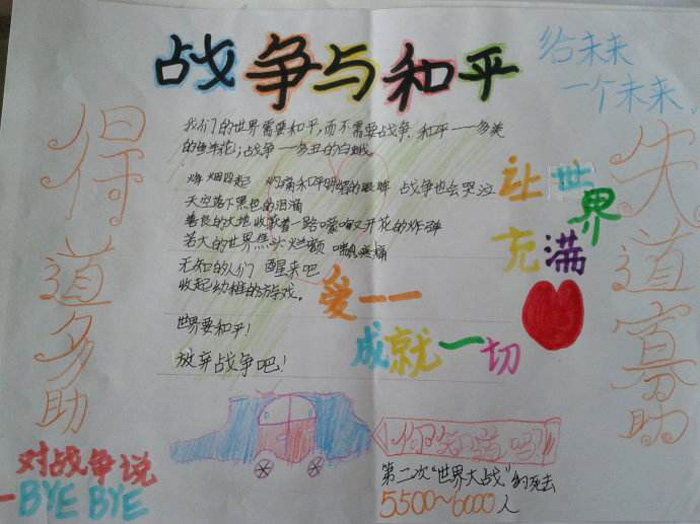 战争与和平
给未来
一个未来
得道多助
失道寡助
我们的世界需要和平,而不需要战争。和平——多美
的牵牛花;战争——多丑的白蛾。
烽烟四起 灼痛和平明媚的眼眸 战争也会哭泣
天空落下黑色的泪滴
善良的大地收敛着一路嚎啕又开花的炸弹
若大的世界焦头烂额 喘息疼痛
无知的人们 醒来吧
收起幼稚的游戏。
世界要和平!
放弃战争吧!
让世界
充满
爱——
成就一切
你知道吗?
第二次"世界大战"的死去
5500~6000人
对战争说
-BYE BYE